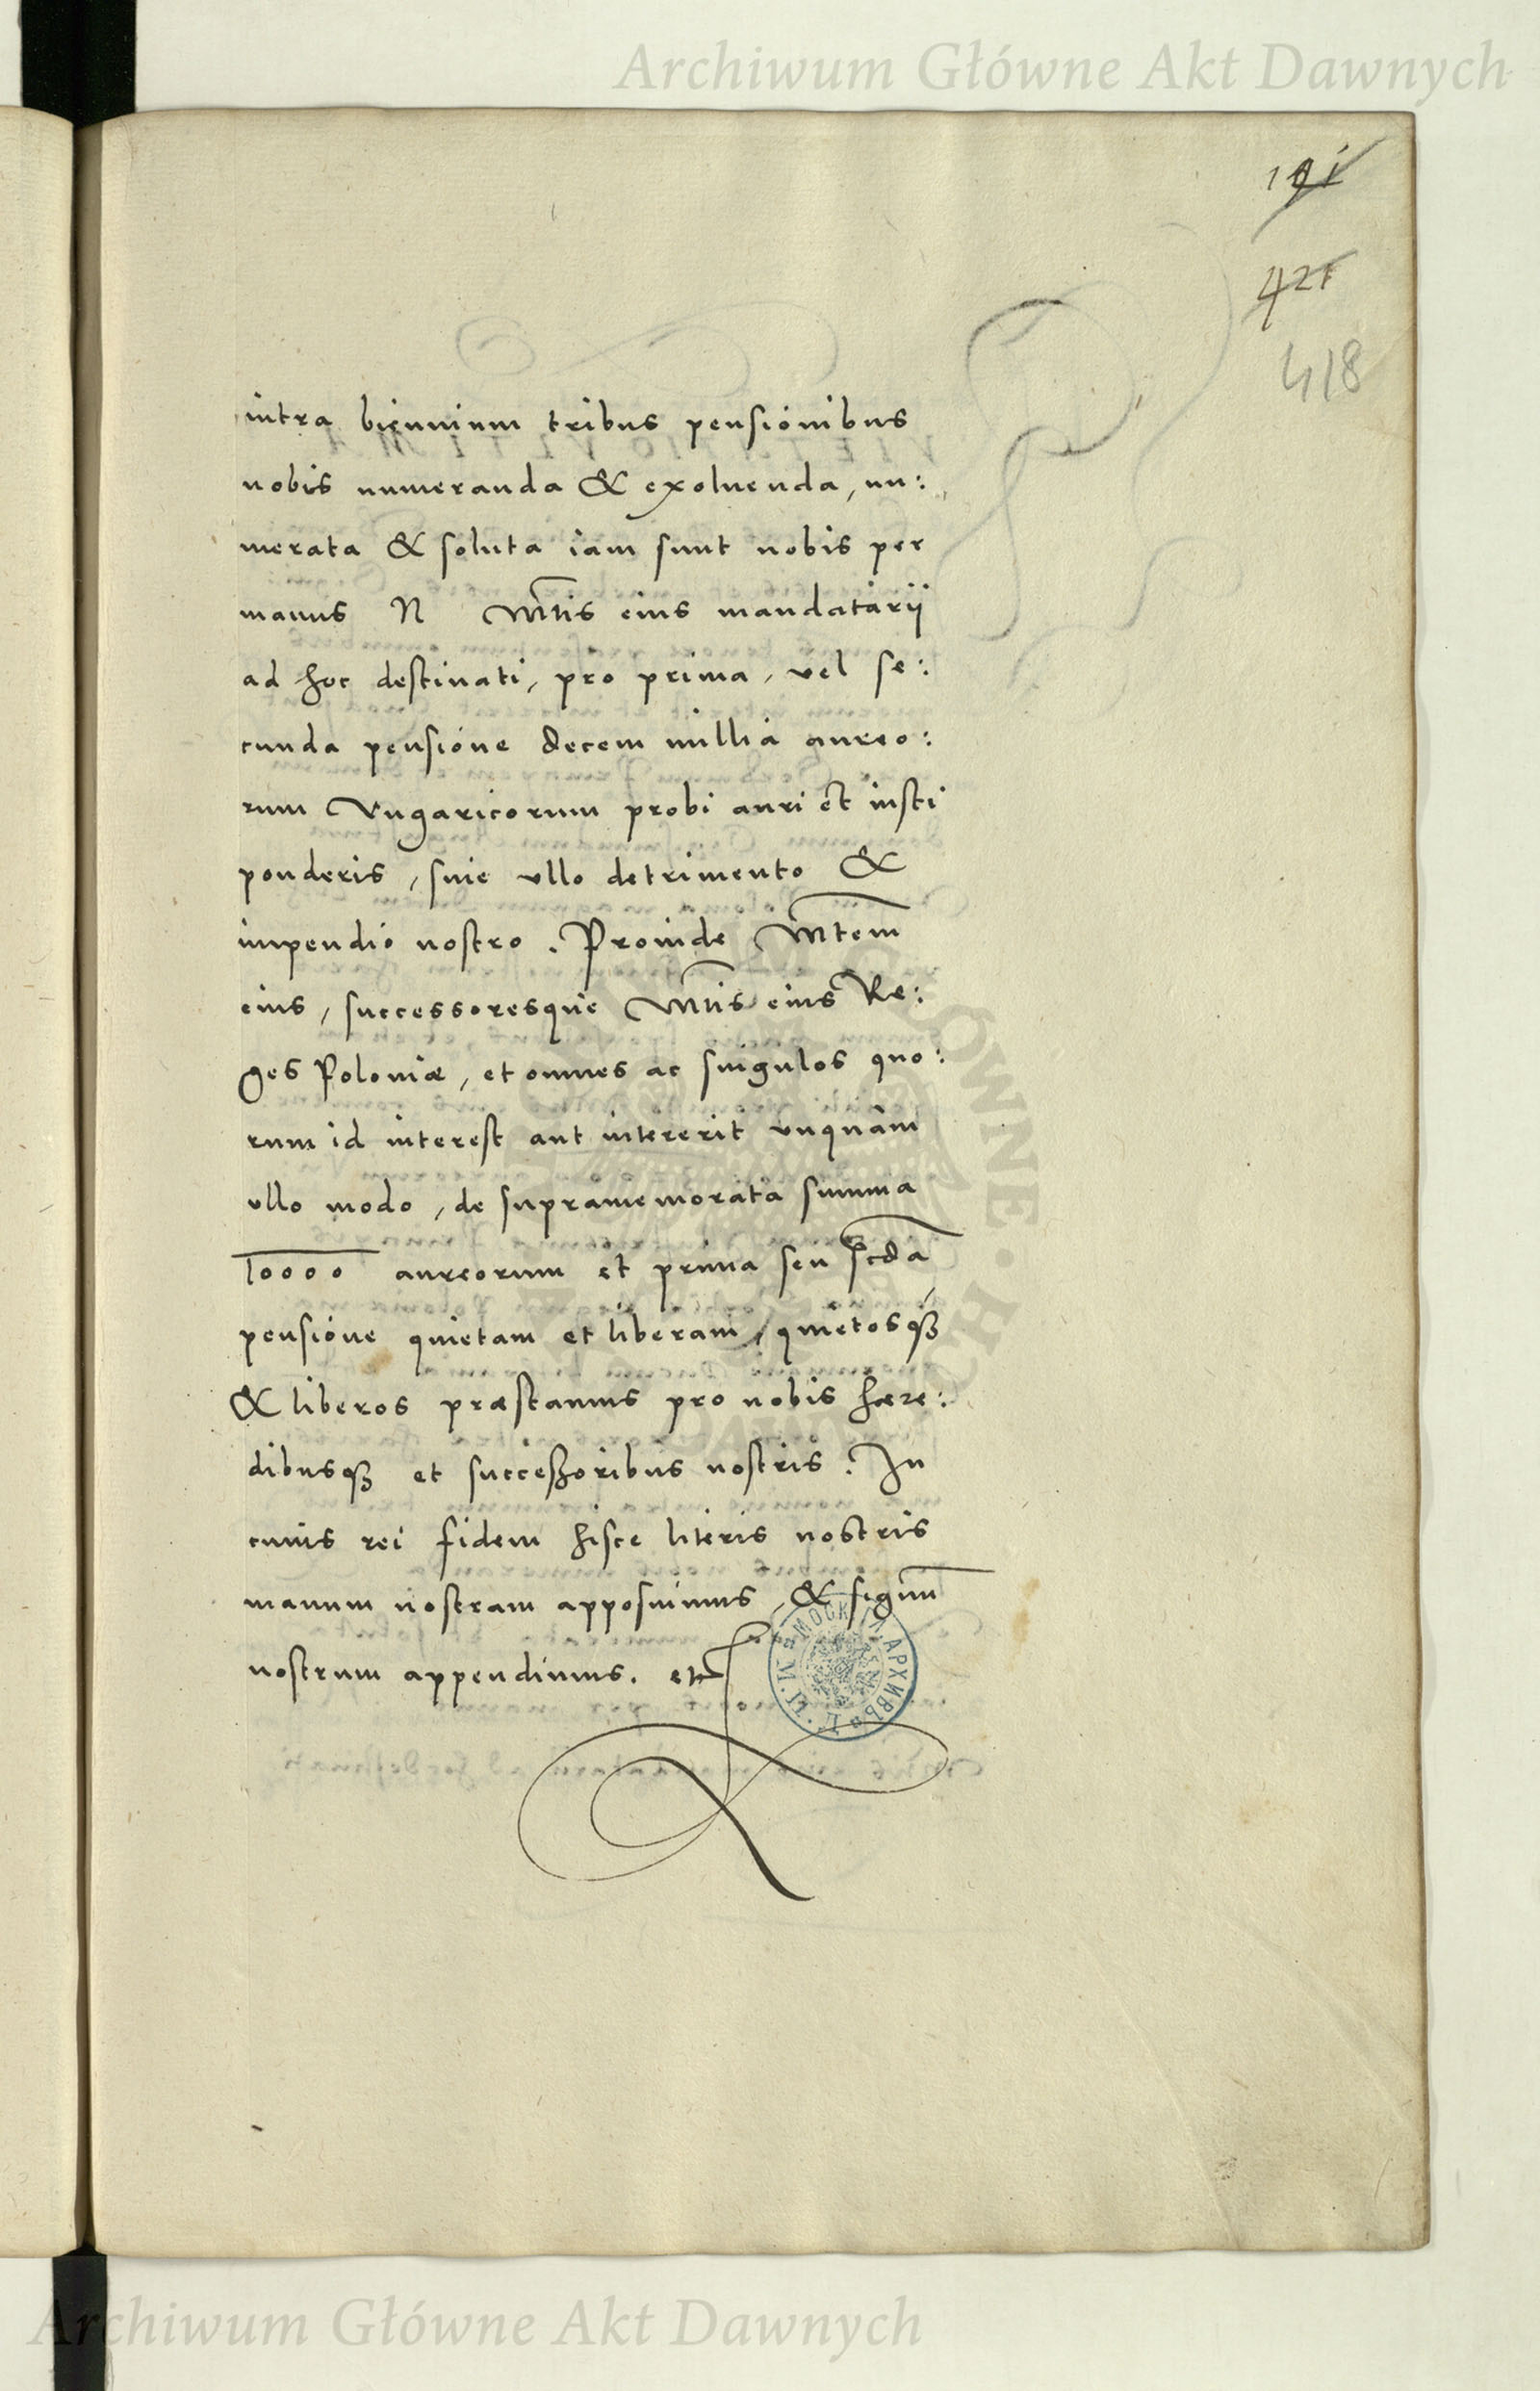 Archiwum Główne Akt Dawnych
191
421
418
intra biennium tribus pensionibus
nobis numeranda & exoluenda, nu:
merata & soluta iam sunt nobis per
manus N Mtis eius mandatarij
ad hoc destinati, pro prima, vel se:
cunda pensione decem millia aureo:
rum Vngaricorum probi auri et iusti
ponderis, sine vllo detrimento &
impendio nostro. Proinde Mtem
eius, successoresque Mtis eius Re:
ges Poloniæ, et omnes ac singulos quo:
rum id interest aut intererit vnquam
vllo modo, de supramemorata summa
10000 aureorum et prima seu scda
pensione quietam et liberam, quietosqȝ
& liberos præstamus pro nobis hære:
dibusqȝ et successoribus nostris. In
cuius rei fidem hisce literis nostris
manum nostram apposuimus, & sigum
nostrum appendimus. etc
МОСК. ГЛ. АРХИВЪ
Archiwum Główne Akt Dawnych